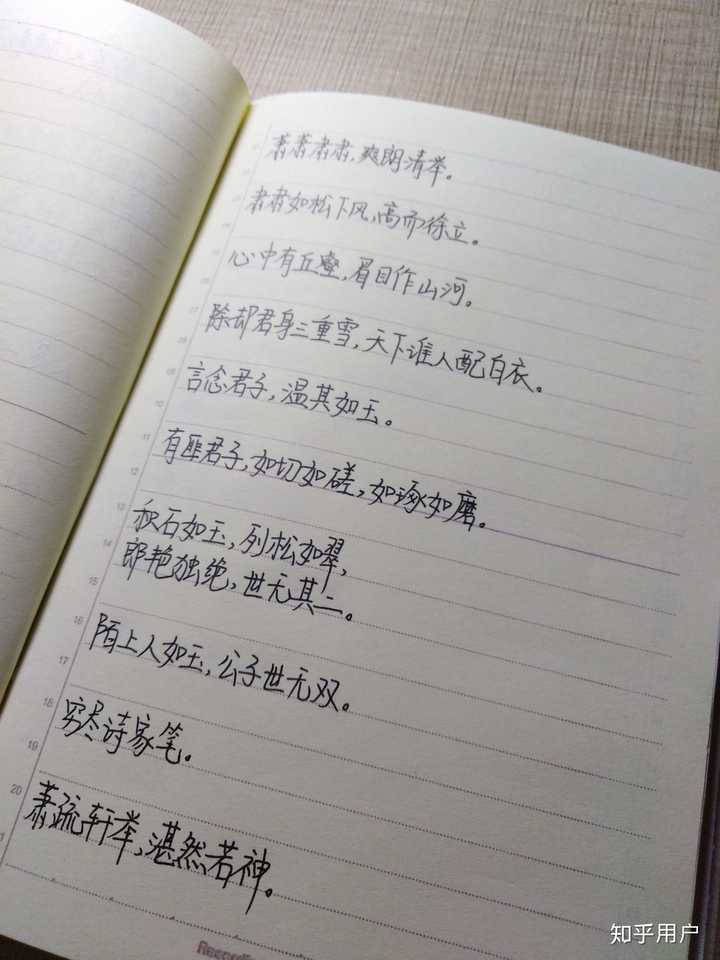 萧萧肃肃,爽朗清举。
肃肃如松下风,高而徐立。
心中有丘壑,眉目作山河。
除却君身三重雪,天下谁人配白衣。
言念君子,温其如玉。
有匪君子,如切如磋,如琢如磨。
积石如玉,列松如翠,
郎艳独绝,世无其二。
陌上人如玉,公子世无双。
穷尽诗家笔。
萧疏轩举,湛然若神。
知乎用户